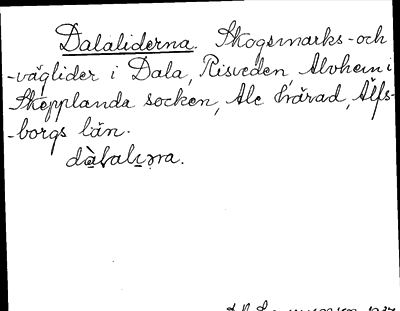 Dalaliderna. Skogsmarks- och
-väglider i Dala, Risveden, Alvhem i
Skepplanda socken, Ale härad, Älfs-
-borgs län.